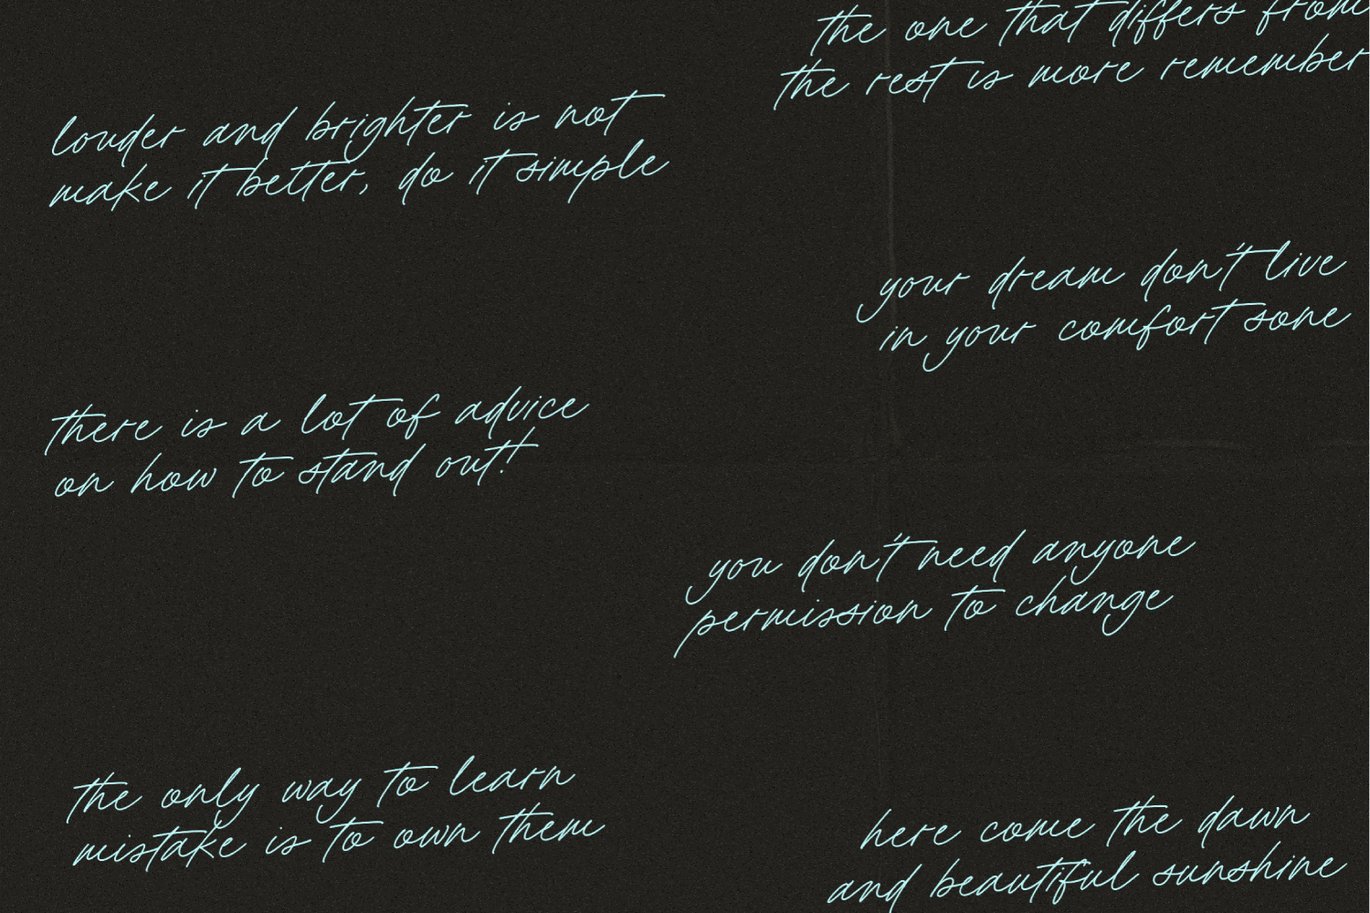 the one that differs from
the rest is more remember
louder and brighter is not
make it better, do it simple
your dream don't live
in your comfort sone
there is a lot of advice
on how to stand out!
you don't need anyone
permission to change
the only way to learn
mistake is to own them
here come the dawn
and beautiful sunshine